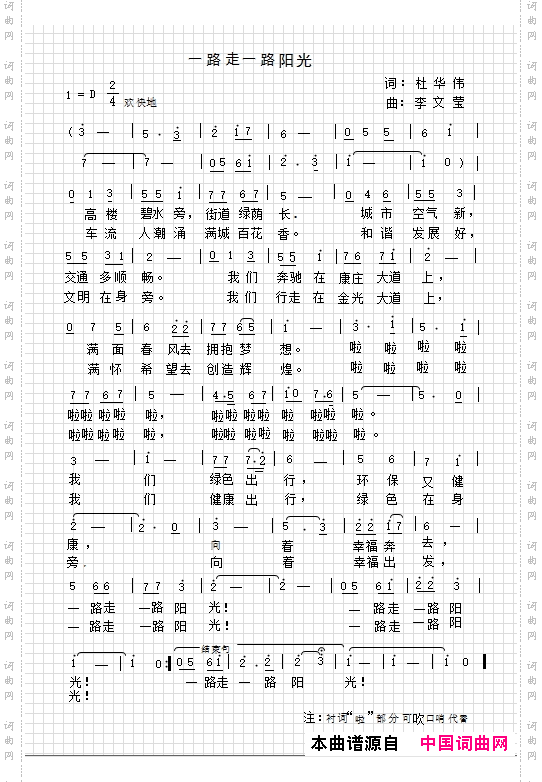 一路走一路阳光
1 = D 2/4 欢快地
词：杜华伟
曲：李文莹
( 3 — | 5 . 3 | 2 1 7 | 6 — | 0 5 5 5 | 6 1 |
7 — | 7 — | 0 5 6 1 | 2 . 3 | 1 — | 1 0 ) |
0 1 3 | 5 5 1 | 7 7 6 7 | 5 — | 0 4 6 | 5 5 3 |
高楼 碧水旁， 街道绿荫长． 城市 空气新，
车流 人潮涌 满城百花香。 和谐 发展好，
5 5 3 1 | 2 — | 0 1 3 | 5 5 1 | 7 6 7 1 | 2 — |
交通多顺畅。 我们奔驰在康庄大道上，
文明在身旁。 我们行走在金光大道上，
0 7 5 | 6 2 2 | 7 7 6 5 | 1 — | 3 . 1 | 5 . 1 |
满面春风去拥抱梦想。 啦 啦 啦 啦
满怀希望去创造辉煌。 啦 啦 啦 啦
7 7 6 7 | 5 — | 4 . 5 6 7 | 1 0 7 . 6 | 5 — | 5 . 0 |
啦啦啦啦啦， 啦啦啦啦啦 啦啦啦。
啦啦啦啦啦， 啦啦啦啦啦 啦啦啦。
3 — | 1 — | 7 7 7 . 2 | 6 — | 5 5 | 7 1 |
我 们 绿色出行， 环保又健
我 们 健康出行， 绿色在身
2 — | 2 . 0 | 3 — | 5 . 3 | 2 2 1 7 | 6 — |
康， 向 着 幸福奔去，
旁． 向 着 幸福出发，
5 6 6 | 7 7 3 | 2 — | 2 — | 0 5 6 1 | 2 2 3 |
一路走 一路阳光！ 一路走 一路阳
一路走 一路阳光！ 一路走 一路阳
结束句
1 — | 1 0 :| 0 5 6 1 | 2 . 2 | 2 3 | 1 — | 1 0 |
光！ 一路走一路阳光！
光！
注：衬词“啦”部分可吹口哨代替
本曲谱源自 中国词曲网
词曲网
词曲网
词曲网
词曲网
词曲网
词曲网
词曲网
词曲网
词曲网
词曲网
词曲网
词曲网
词曲网